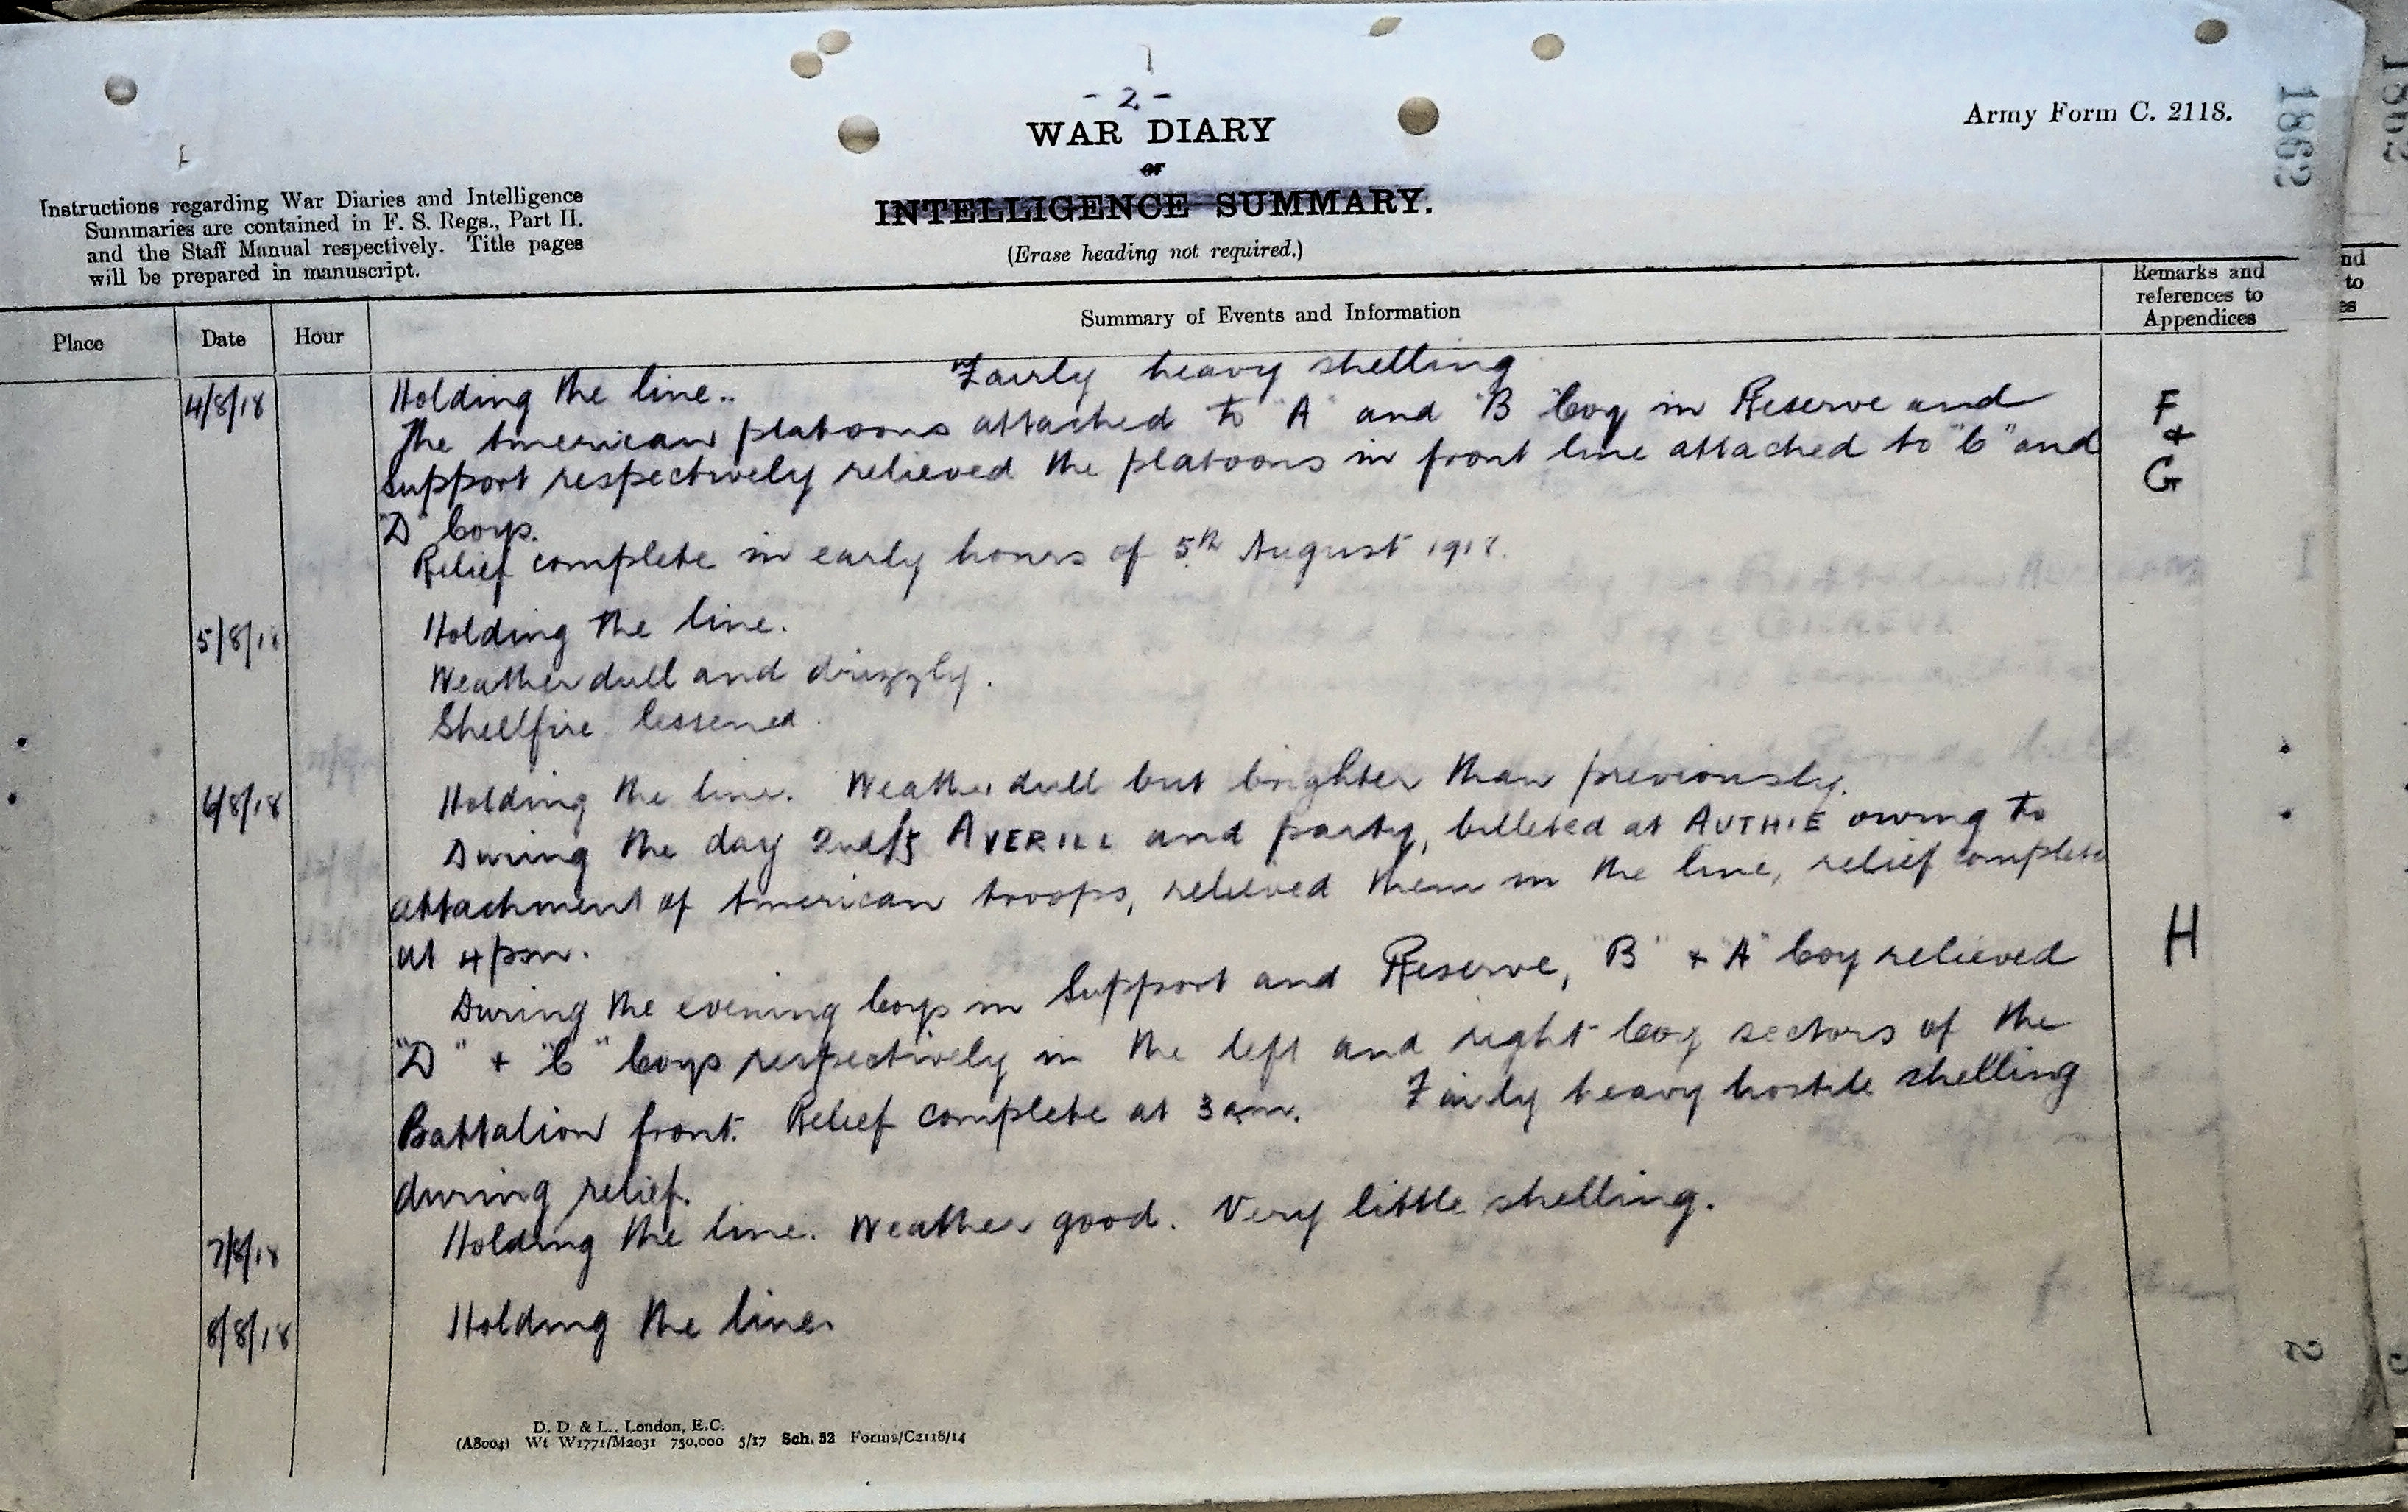 - 2 -
WAR DIARY
or
INTELLIGENCE SUMMARY.
(Erase heading not required.)
Army Form C. 2118.
1862
Instructions regarding War Diaries and Intelligence
Summaries are contained in F. S. Regs., Part II.
and the Staff Manual respectively. Title pages
will be prepared in manuscript.
Place Date Hour Summary of Events and Information Remarks and
references to
Appendices
4/8/18 Holding the line.. Fairly heavy shelling
The American platoons attached to "A" and "B" Coy in Reserve and F
Support respectively relieved the platoons in front line attached to "C" and &
"D" Coys. G
Relief complete in early hours of 5th August 1918.
5/8/18 Holding the line.
Weather dull and drizzly.
Shellfire lessened.
6/8/18 Holding the line. Weather dull but brighter than previously.
During the day AVERILL and party, billeted at AUTHIE owing to
attachment of American troops, relieved them in the line, relief complete
at 4 pm.
During the evening Coys in Support and Reserve, "B" + "A" Coy relieved H
"D" + "C" Coys respectively in the left and right Coy sectors of the
Battalion front. Relief complete at 3 am. Fairly heavy hostile shelling
during relief.
7/8/18 Holding the line. Weather good. Very little shelling.
8/8/18 Holding the line.
2
D. D. & L., London, E.C.
(A8004) Wt W1771/M2031 750,000 5/17 Sch. 52 Forms/C2118/14